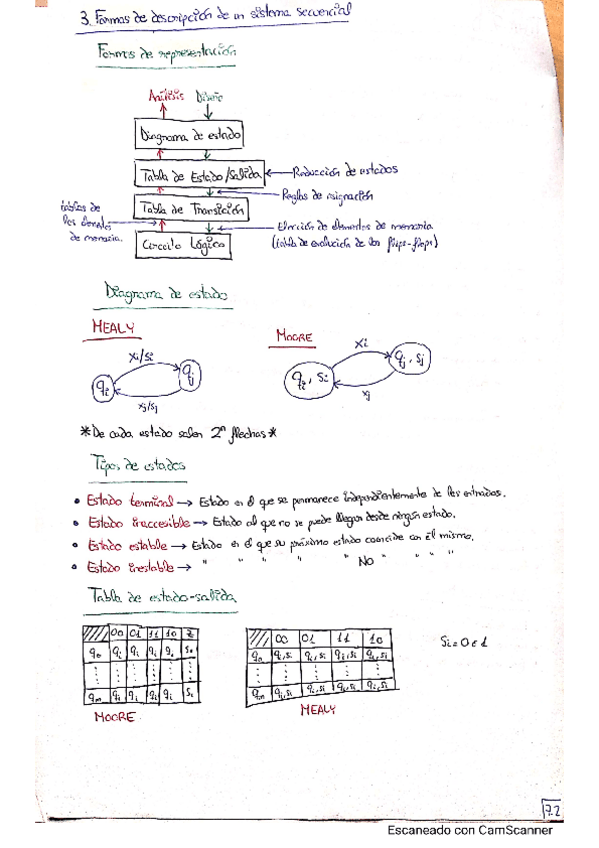 3. Formas de descripción de un sistema secuencial
Formas de representación
Análisis Diseño
Diagrama de estado
Tabla de Estado/Salida ← Reducción de estados
Reglas de asignación
Tabla de Transición
tablas de
los elementos
de memoria.
Elección de elementos de memoria
(tabla de evolución de los flips-flops)
Circuito Lógico
Diagrama de estado
MEALY
MOORE
xi/si
qi
qj
xj/sj
xi
qi, si
qj, sj
xj
*De cada estado salen 2ⁿ flechas*
Tipos de estados
• Estado terminal → Estado en el que se permanece independientemente de las entradas.
• Estado inaccesible → Estado al que no se puede llegar desde ningún estado.
• Estado estable → Estado en el que su próximo estado coincide con él mismo.
• Estado inestable → " " " " " No " " " "
Tabla de estado-salida
00 01 11 10 z
q0 qi qi qi qi s0
qm qi qi qi qi si
MOORE
00 01 11 10
q0 qi,si qi,si qi,si qi,si
qm qi,si qi,si qi,si qi,si
MEALY
Si = 0 ó 1
72
Escaneado con CamScanner